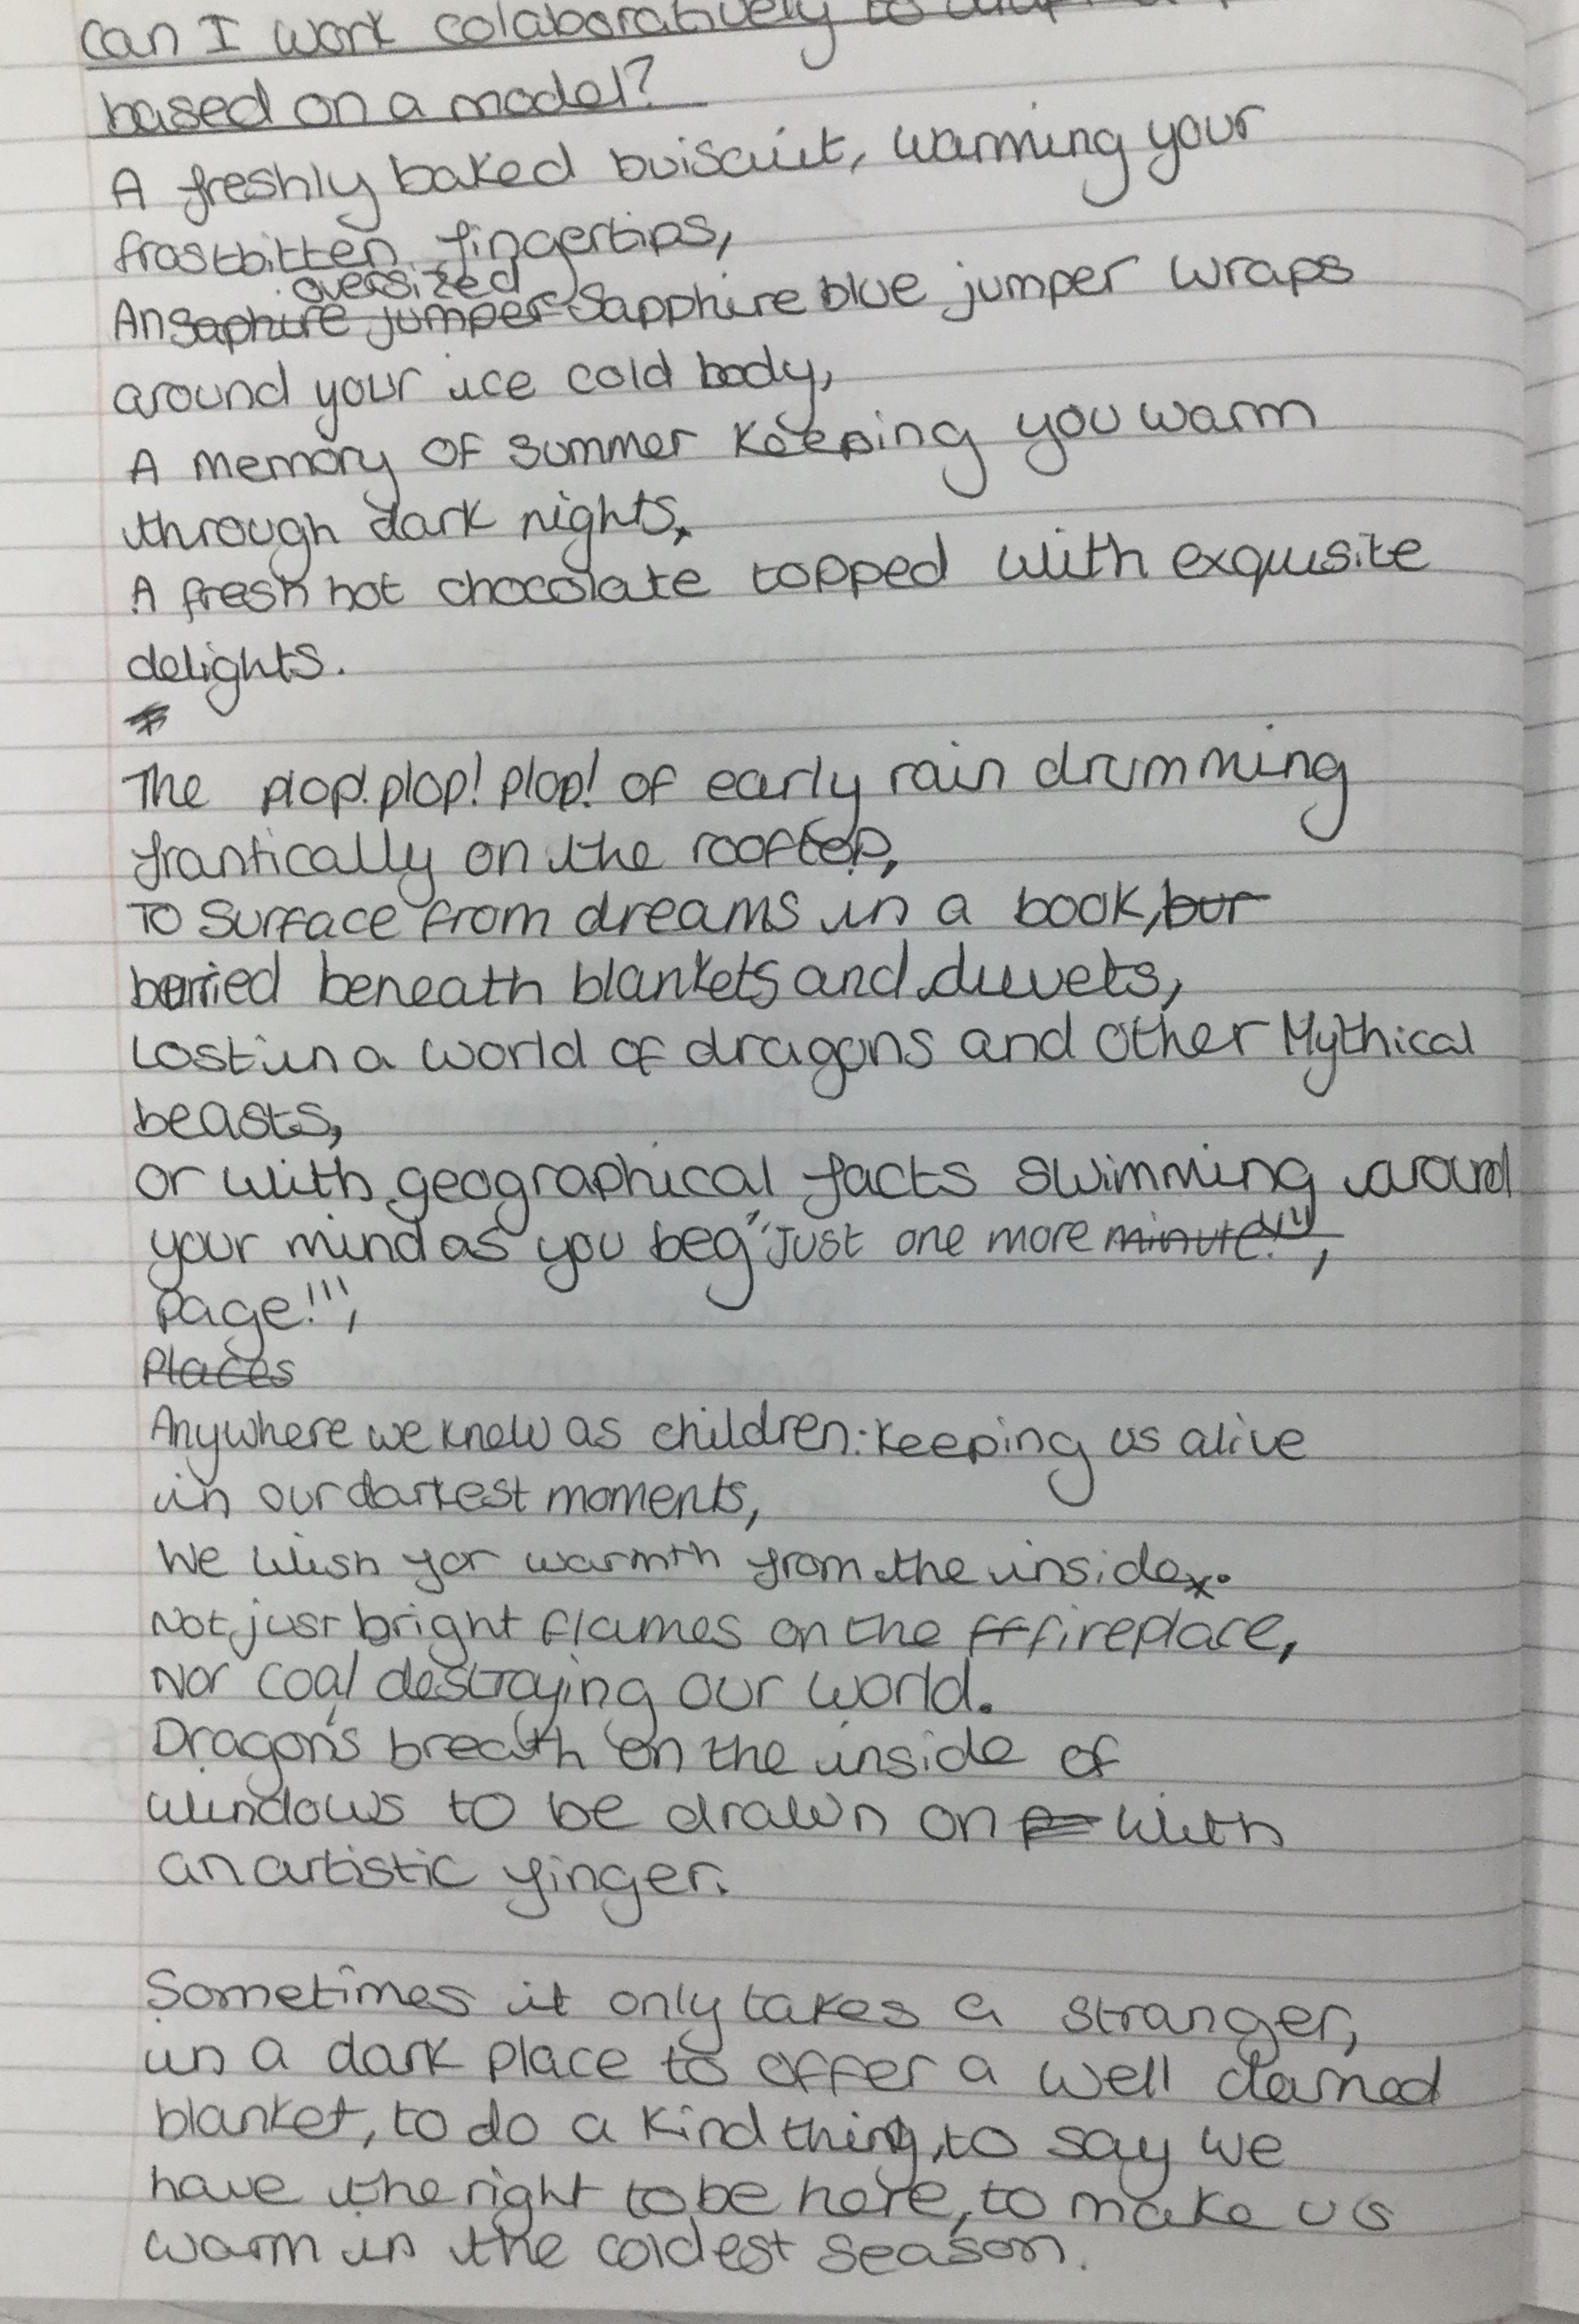 Can I work colaboratively to adapt a
based on a model?
A freshly baked buiscuit, warming your
frostbitten fingertips,
oversized
An saphire jumper Sapphire blue jumper wraps
around your ice cold body,
A memory of summer keeping you warm
through dark nights,
A fresh hot chocolate topped with exquisite
delights.
The plop! plop! plop! of early rain drumming
frantically on the rooftop,
To surface from dreams in a book, bur
burried beneath blankets and duvets,
Lost in a world of dragons and other Mythical
beasts,
or with geographical facts swimming around
your mind as you beg, "Just one more minute!!",
page!!",
Places
Anywhere we knew as children: keeping us alive
in our darkest moments,
We wish for warmth from the inside.
Not just bright flames on the fireplace,
Nor coal destroying our world.
Dragon's breath on the inside of
windows to be drawn on with
an artistic finger.
Sometimes it only takes a stranger,
in a dark place to offer a well darned
blanket, to do a kind thing, to say we
have the right to be here, to make us
warm in the coldest season.